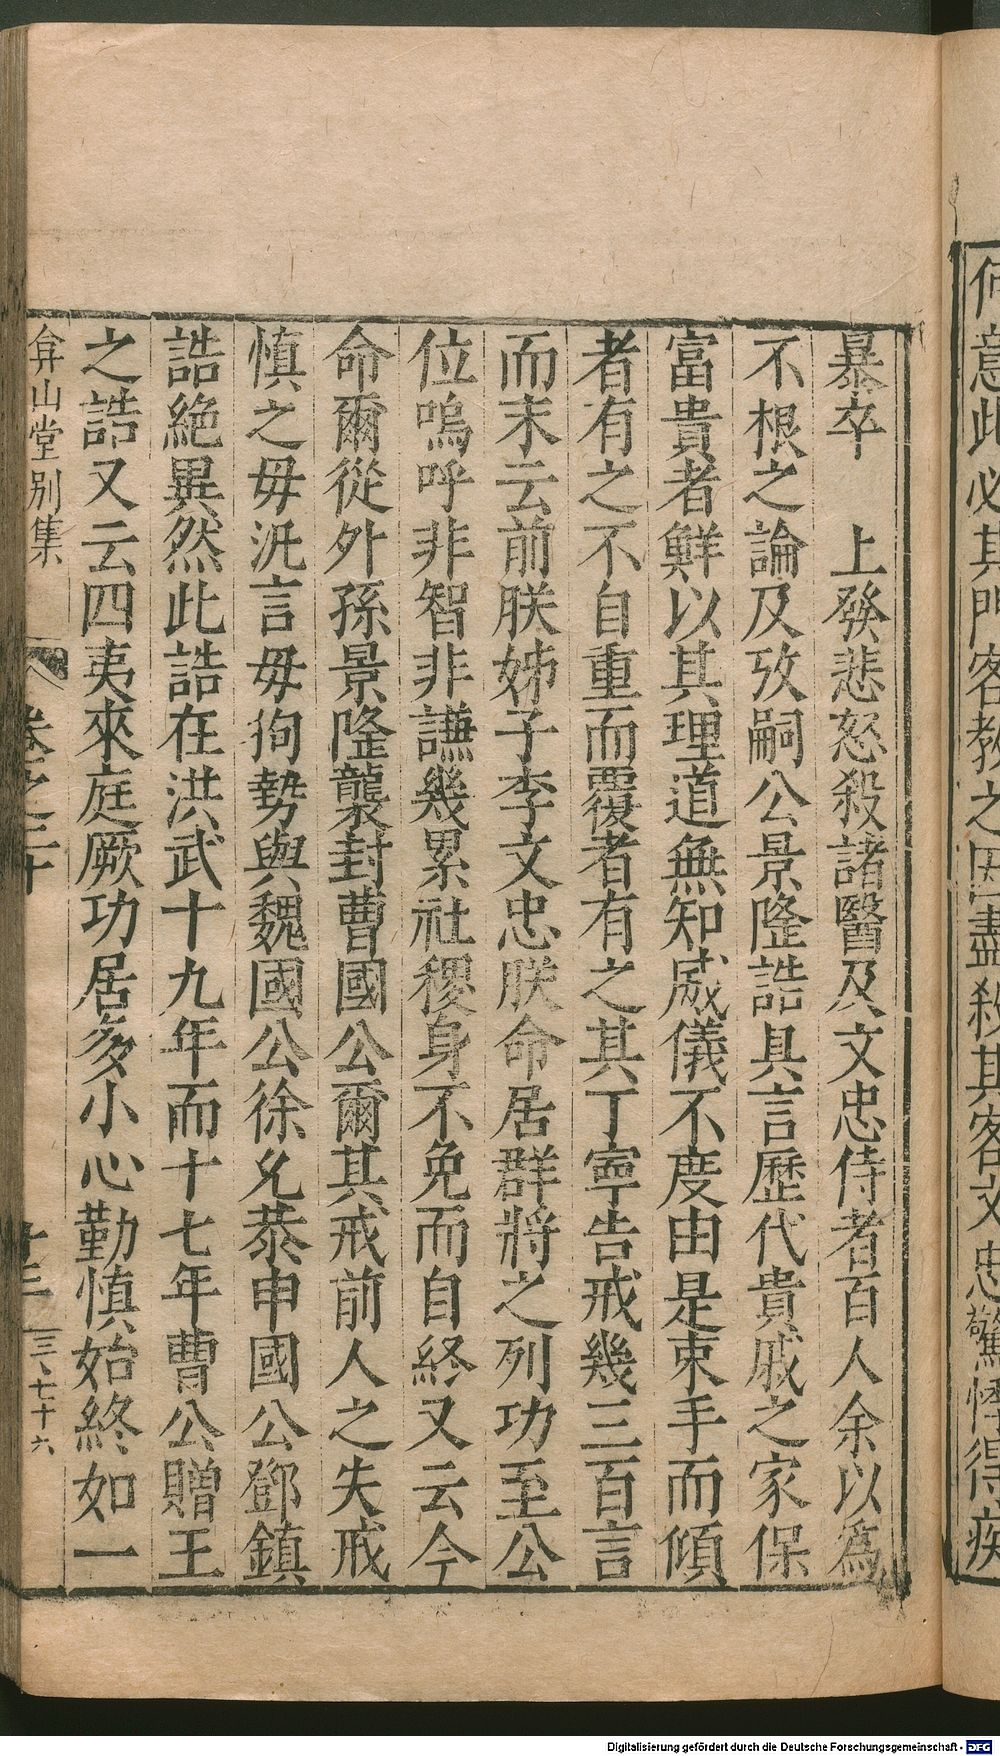 何意此必其門客教之因盡殺其客文忠驚悸得疾
暴卒　上發悲怒殺諸醫及文忠侍者百人余以爲
不根之論及攷嗣公景隆誥具言歷代貴戚之家保
富貴者鮮以其理道無知威儀不度由是束手而傾
者有之不自重而覆者有之其丁寧告戒幾三百言
而末云前朕姊子李文忠朕命居群將之列功至公
位嗚呼非智非謙幾累社稷身不免而自終又云今
命爾從外孫景隆襲封曹國公爾其戒前人之失戒
慎之毋汎言毋狥勢與魏國公徐允恭申國公鄧鎮
誥絕異然此誥在洪武十九年而十七年曹公贈王
之誥又云四夷來庭厥功居多小心勤慎始終如一
弇山堂別集 卷之三十 十三 三、七十六
Digitalisierung gefördert durch die Deutsche Forschungsgemeinschaft - DFG